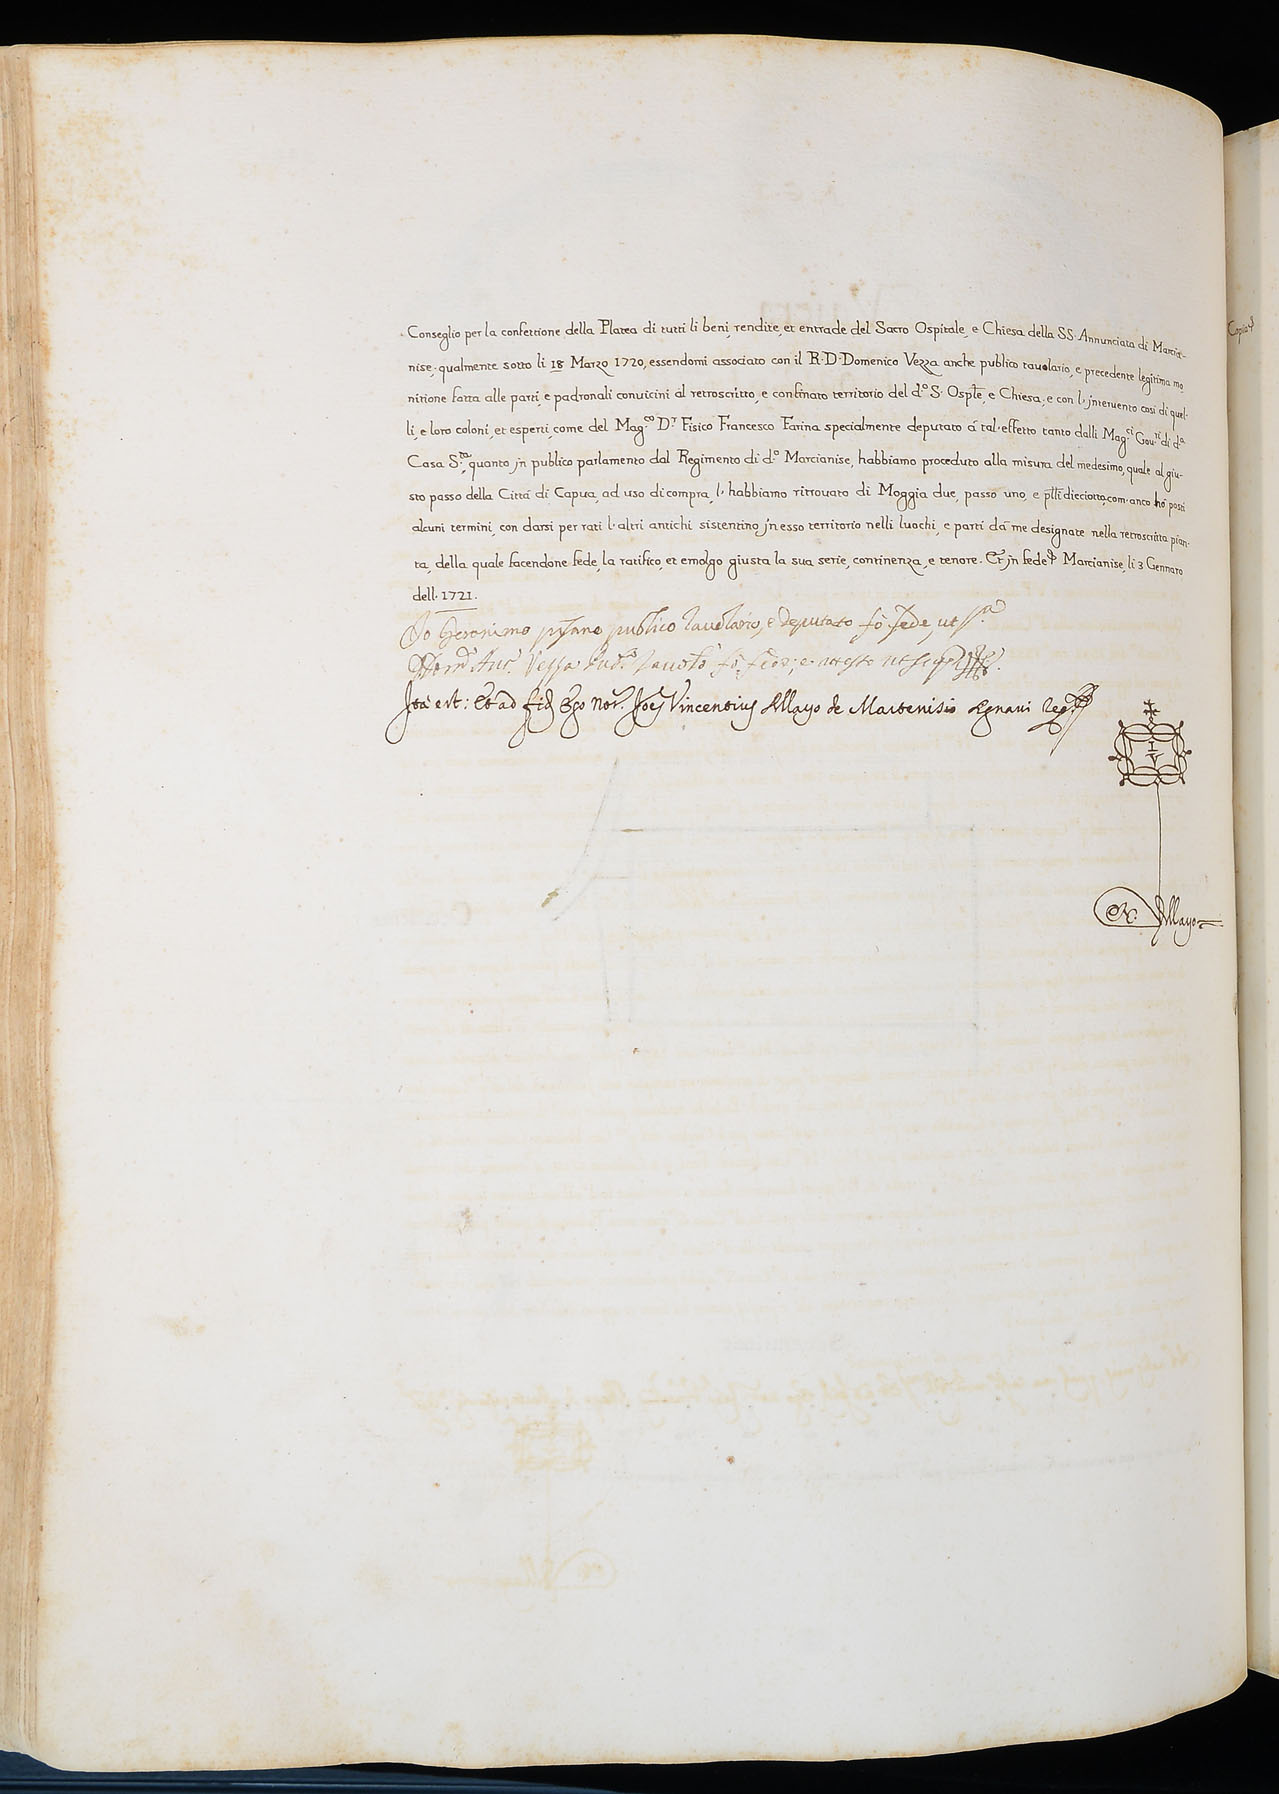 Conseglio per la confettione della Platea di tutti li beni, rendite, et entrade del Sacro Ospitale, e Chiesa della SS. Annunciata di Marcia-
nise, qualmente sotto li 18 Marzo 1720, essendomi associato con il R. D. Domenico Vezza anche publico tavolario, e precedente legitima mo
nitione fatta alle parti, e padronali convicini al retroscritto, e confinato territorio del d.º S. Osple, e Chiesa, e con l'jntervento cosi di quel-
li, e loro coloni, et esperti, come del Mag.co D.r Fisico Francesco Farina specialmente deputato á tal'effetto tanto dalli Mag.ci Gov.ri di d.a
Casa S.ta, quanto jn publico parlamento dal Regimento di d.º Marcianise, habbiamo proceduto alla misura del medesimo, quale al giu-
sto passo della Cittá di Capua, ad uso di compra, l'habbiamo ritrovato di Moggia due, passo uno, e plli dieciotto, com'anco hò posti
alcuni termini, con darsi per rati l'altri antichi sistentino jn esso territorio nelli luochi, e parti dá me designate nella retroscritta pian-
ta, della quale facendone fede, la ratifico, et emolgo giusta la sua serie, continenza, e tenore. Et jn fede Marcianise, li 3 Gennaro
dell' 1721.
Io Geronimo publico Tavolario, e deputato fò fede, ut s.a
Vezza fò fede, e attesto ut
Ita est: Et ad fid Ego Not.r Joes Vincentius Allayo de Martenisio signavi
I
V
N. Allayo
Copia